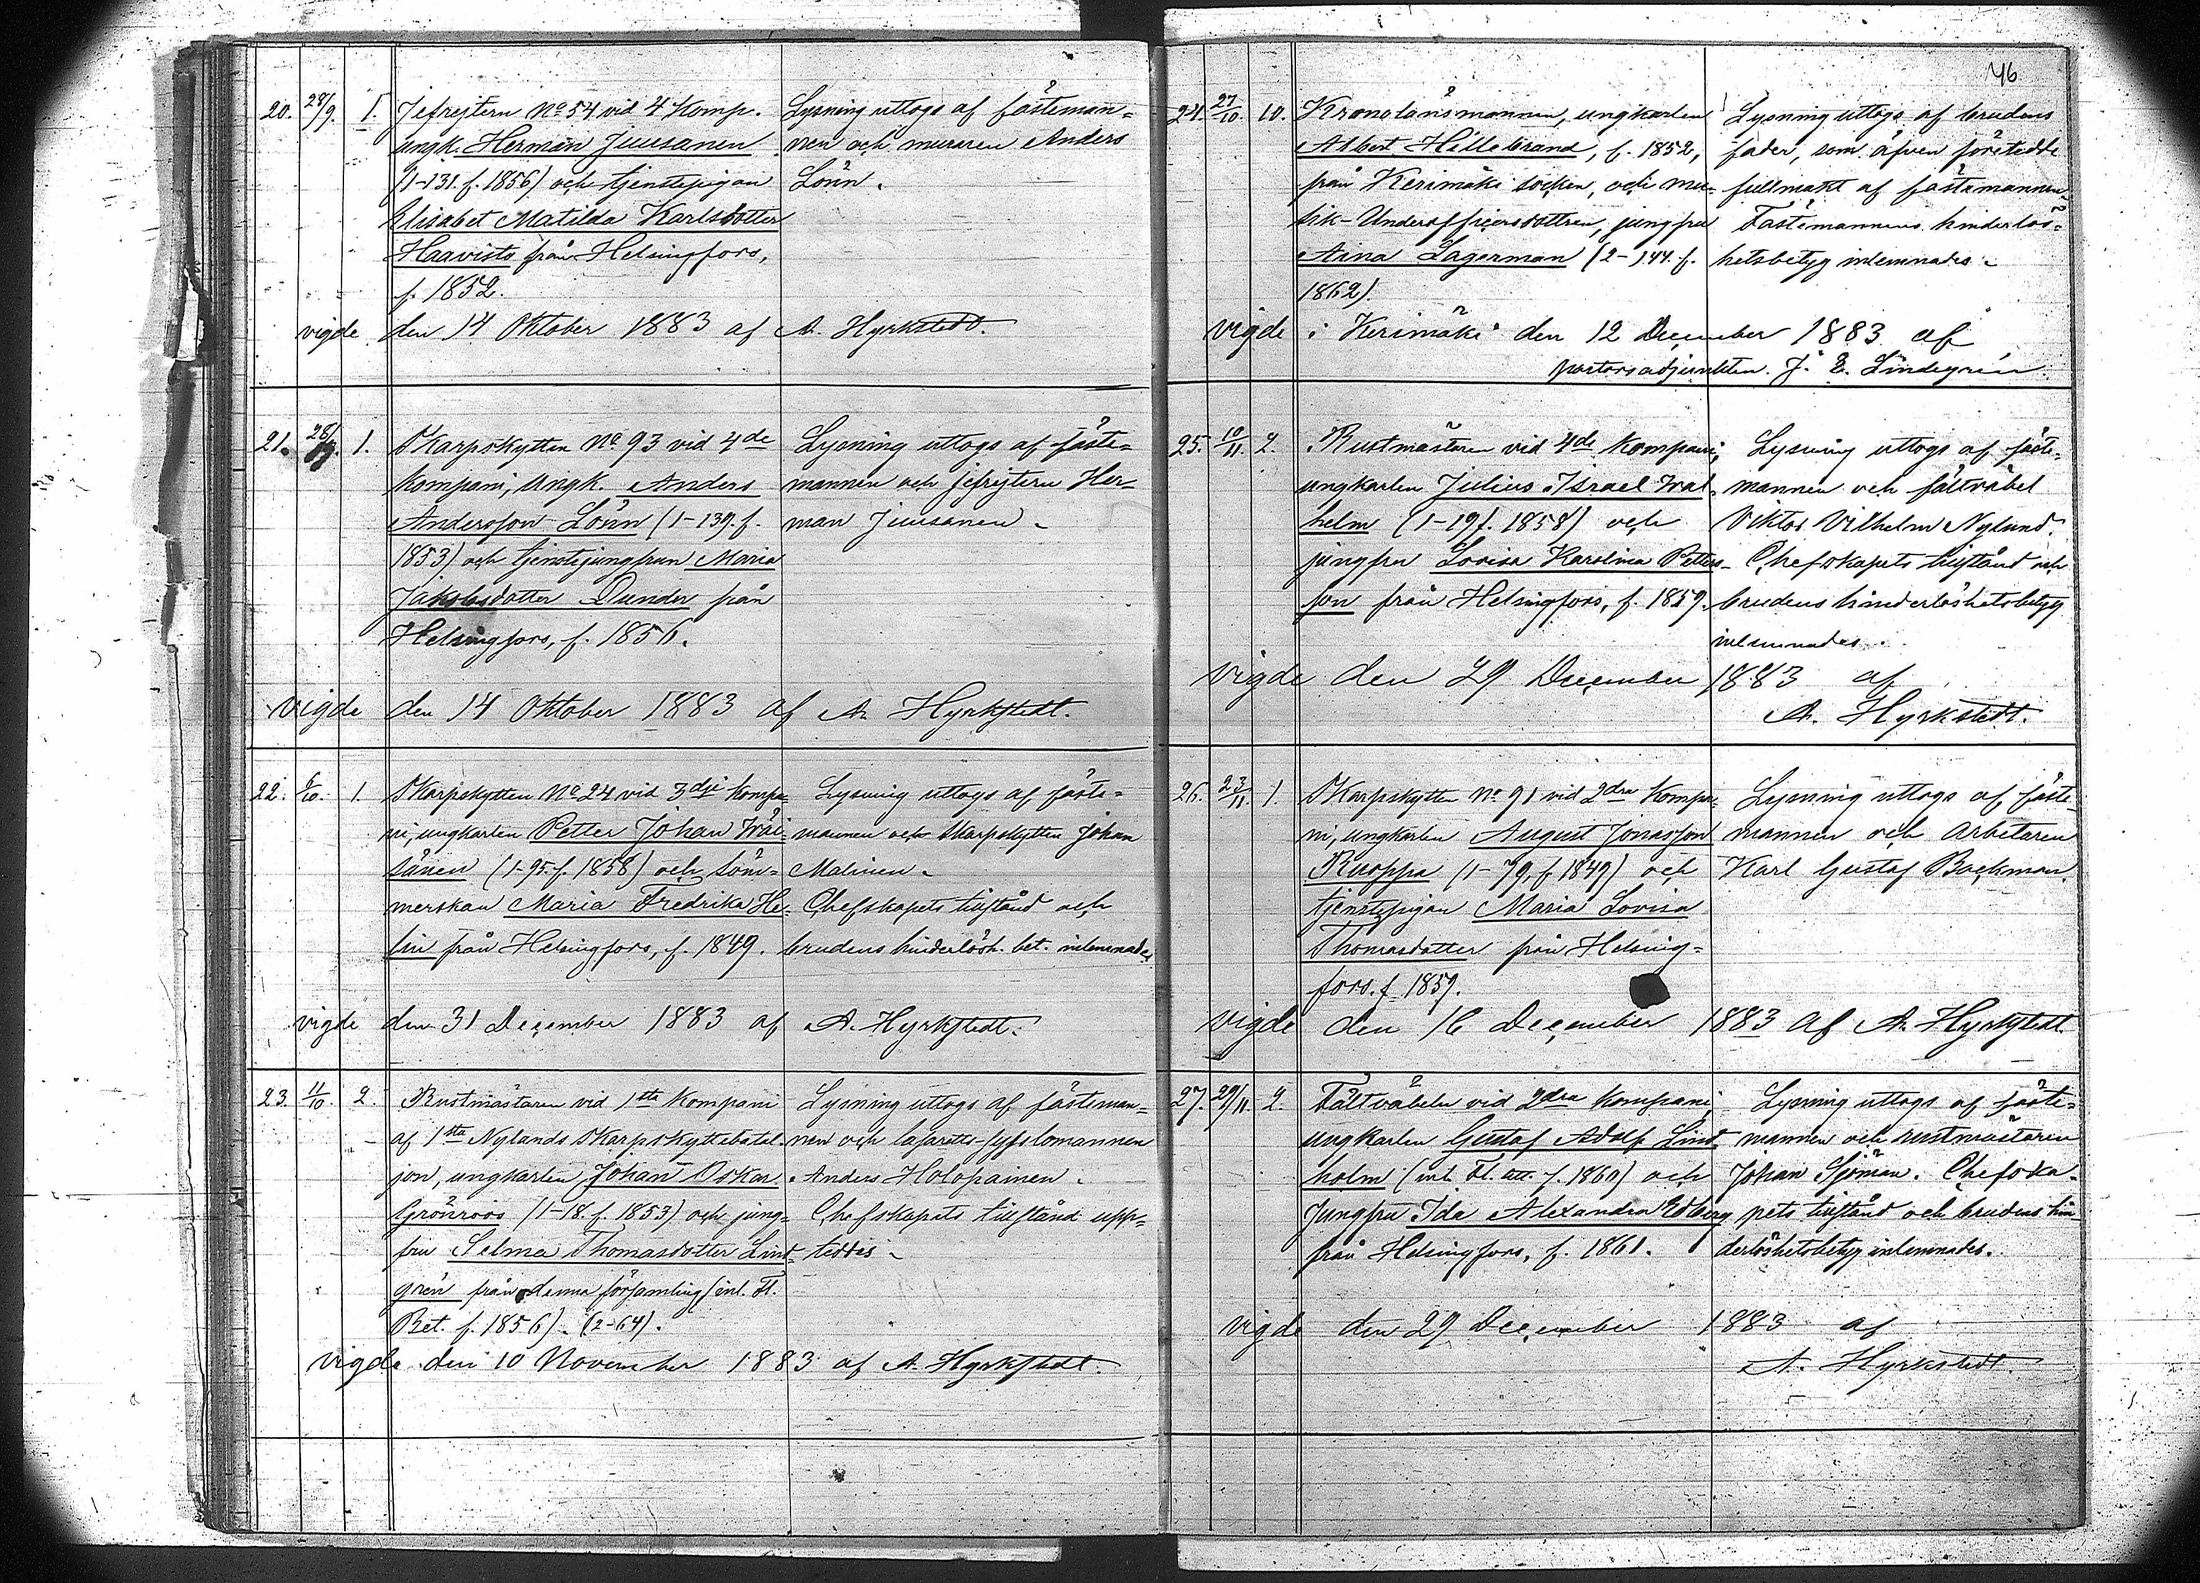 20. 28/9. 1. Jefrejtern No 54 vid 4 Komp.
ungk. Herman Juusanen
(1-131. f. 1856) och tjenstepigan
Elisabet Matilda Karlsdotter
Haavisto från Helsingfors,
f. 1852.
Lysning uttogs af fästeman-
nen och muraren Anders
Lönn.
vigde den 14 Oktober 1883 af A. Hyrkstedt.
21. 28/9. 1. Skarpskytten No 93 vid 4de
Kompani, Ungk. Anders
Andersson Lönn (1-139. f.
1853) och tjenstejungfrun Maria
Jakobsdotter Dunder från
Helsingfors, f. 1856.
Lysning uttogs af fäste-
mannen och jefrejtern Her-
man Juusanen.
vigde den 14 Oktober 1883 af A. Hyrkstedt.
22. 6/10. 1. Skarpskytten No 24 vid 3dje Kompa-
ni, ungkarlen Petter Johan Wäi-
sänen (1-95. f. 1858) och söm-
merskan Maria Fredrika He-
lin från Helsingfors, f. 1849.
Lysning uttogs af fäste-
mannen och skarpskytten Johan
Malinen.
Chefskapets tillstånd och
brudens hinderlösh. bet. inlemnades
vigde den 31 December 1883 af A. Hyrkstedt.
23. 11/10. 2. Rustmästaren vid 1sta Kompani
af 1sta Nylands Skarpskyttebatal-
jon, ungkarlen Johan Oskar
Grönroos (1-18. f. 1853) och jung-
fru Selma Thomasdotter Lind-
grén från denna församling (inl. Fl.
Bet. f. 1856). (2-64).
Lysning uttogs af fästeman-
nen och lasaretts-sysslomannen
Anders Holopainen.
Chefskapets tillstånd upp-
teddes.
vigde den 10 November 1883 af A. Hyrkstedt.
46
24. 27/10. 10. Kronolänsmannen, ungkarlen
Albert Hillebrand, f. 1852,
från Kerimäki socken, och mu-
sik-Underofficersdottren, jungfru
Aina Lagerman (2-144. f.
1862).
Lysning uttogs af brudens
fader, som äfven företedde
fullmakt af fästemannen.
Fästemannens hinderlös-
hetsbetyg inlemnades.
vigde i Kerimäki den 12 December 1883 af
pastorsadjunkten J. E. Lindegrén.
25. 10/11. 2. Rustmästaren vid 4de Kompani,
ungkarlen Julius Israel Wal-
helm (1-19 f. 1858) och
jungfru Lovisa Karolina Petters-
son från Helsingfors, f. 1859.
Lysning uttogs af fäste-
mannen och fältväbel
Viktor Vilhelm Nylund.
Chefskapets tillstånd och
brudens hinderlöshetsbetyg
inlemnades.
vigde den 29 December 1883 af
A. Hyrkstedt.
26. 23/11. 1. Skarpskytten No 91 vid 2dra Kompa-
ni, ungkarlen August Jonasson
Ruoppa (1-79, f 1849) och
tjenstepigan Maria Lovisa
Thomasdotter från Helsing-
fors. f. 1859.
Lysning uttogs af fäste-
mannen och arbetaren
Karl Gustaf Backman.
vigde den 16 December 1883 af A. Hyrkstedt
27. 29/11. 2. Fältväbeln vid 2dra Kompani,
ungkarlen Gustaf Adolf Lind-
holm (inl. Fl. att. f. 1860) och
Jungfru Ida Alexandra Edberg
från Helsingfors, f. 1861.
Lysning uttogs af fäste-
mannen och rustmästaren
Johan Sjöman. Chefska-
pets tillstånd och brudens hin-
derlöshetsbetyg inlemnades.
vigde den 29 December 1883 af
A. Hyrkstedt.